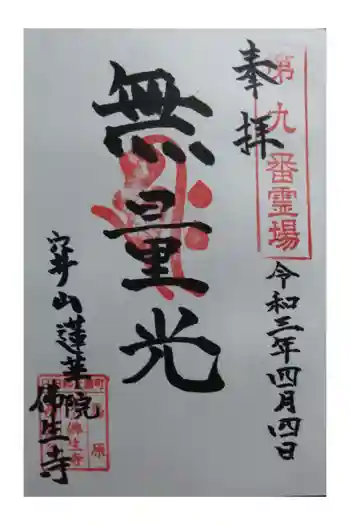 第九番霊場
奉拝
令和三年四月四日
無量光
穽山蓮華院
佛生寺